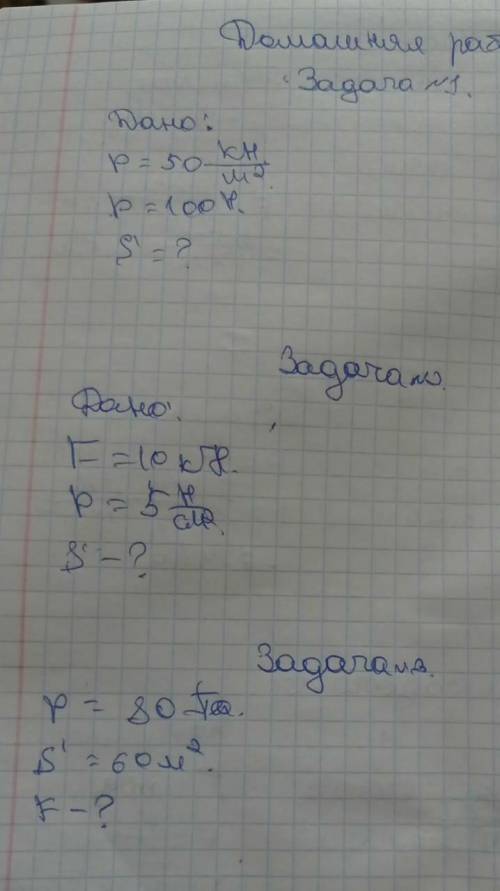 Домашняя раб
Задача №1.
Дано:
p = 50 кН/м²
p = 100 Н.
S = ?
Задача №2.
Дано:
F = 10 кН.
p = 5 Н/см²
S - ?
Задача №3.
p = 80 Па.
S = 60 м².
F - ?